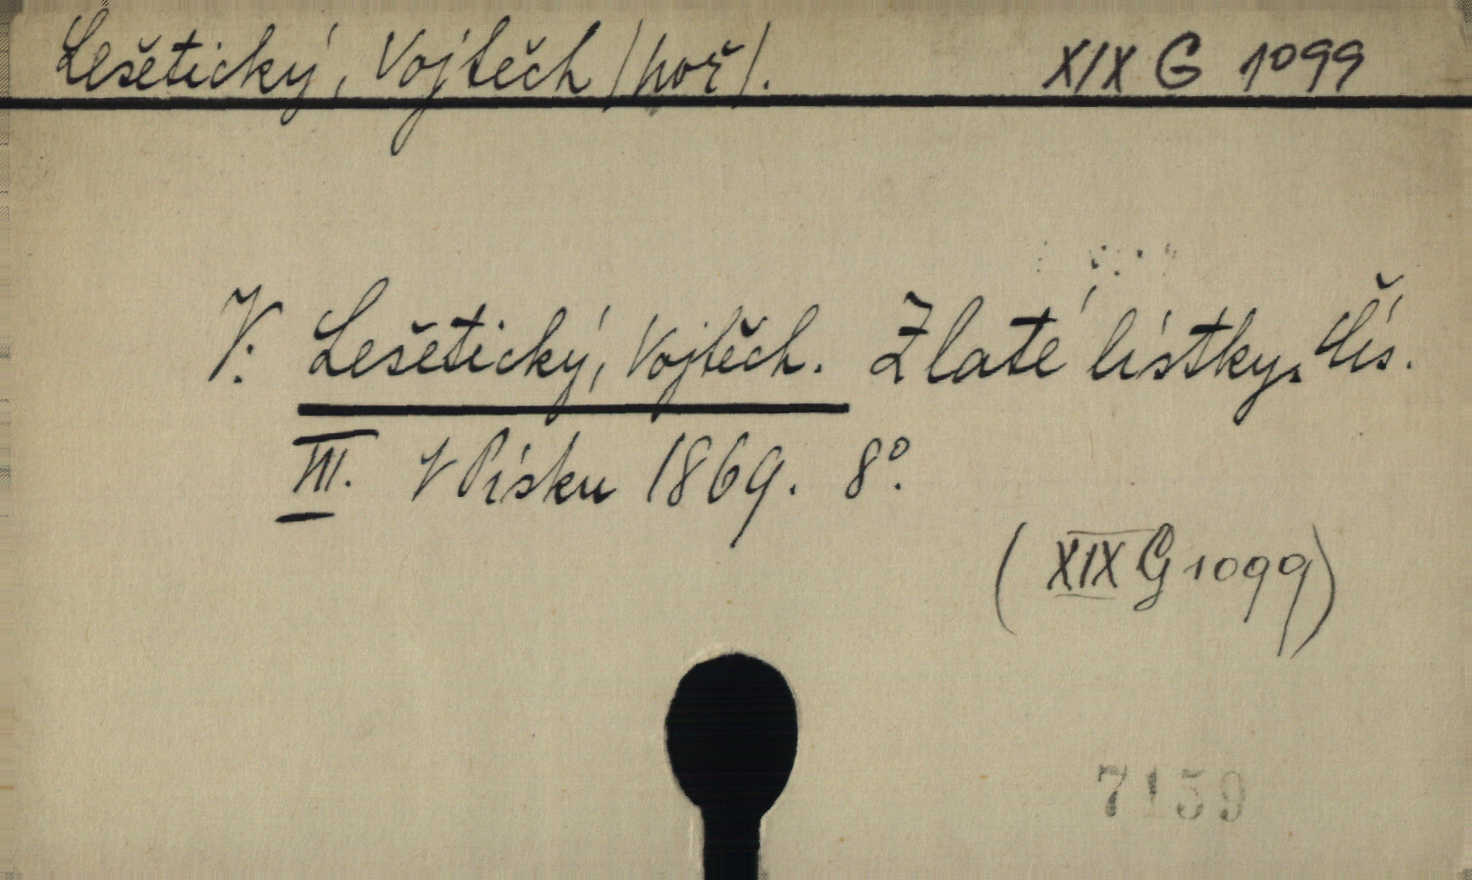 Lešetický, Vojtěch /poř/. XIX G 1099
V: Lešetický, Vojtěch. Zlaté lístky. Čís.
III. V Písku 1869. 8°.
(XIX G 1099)
7159